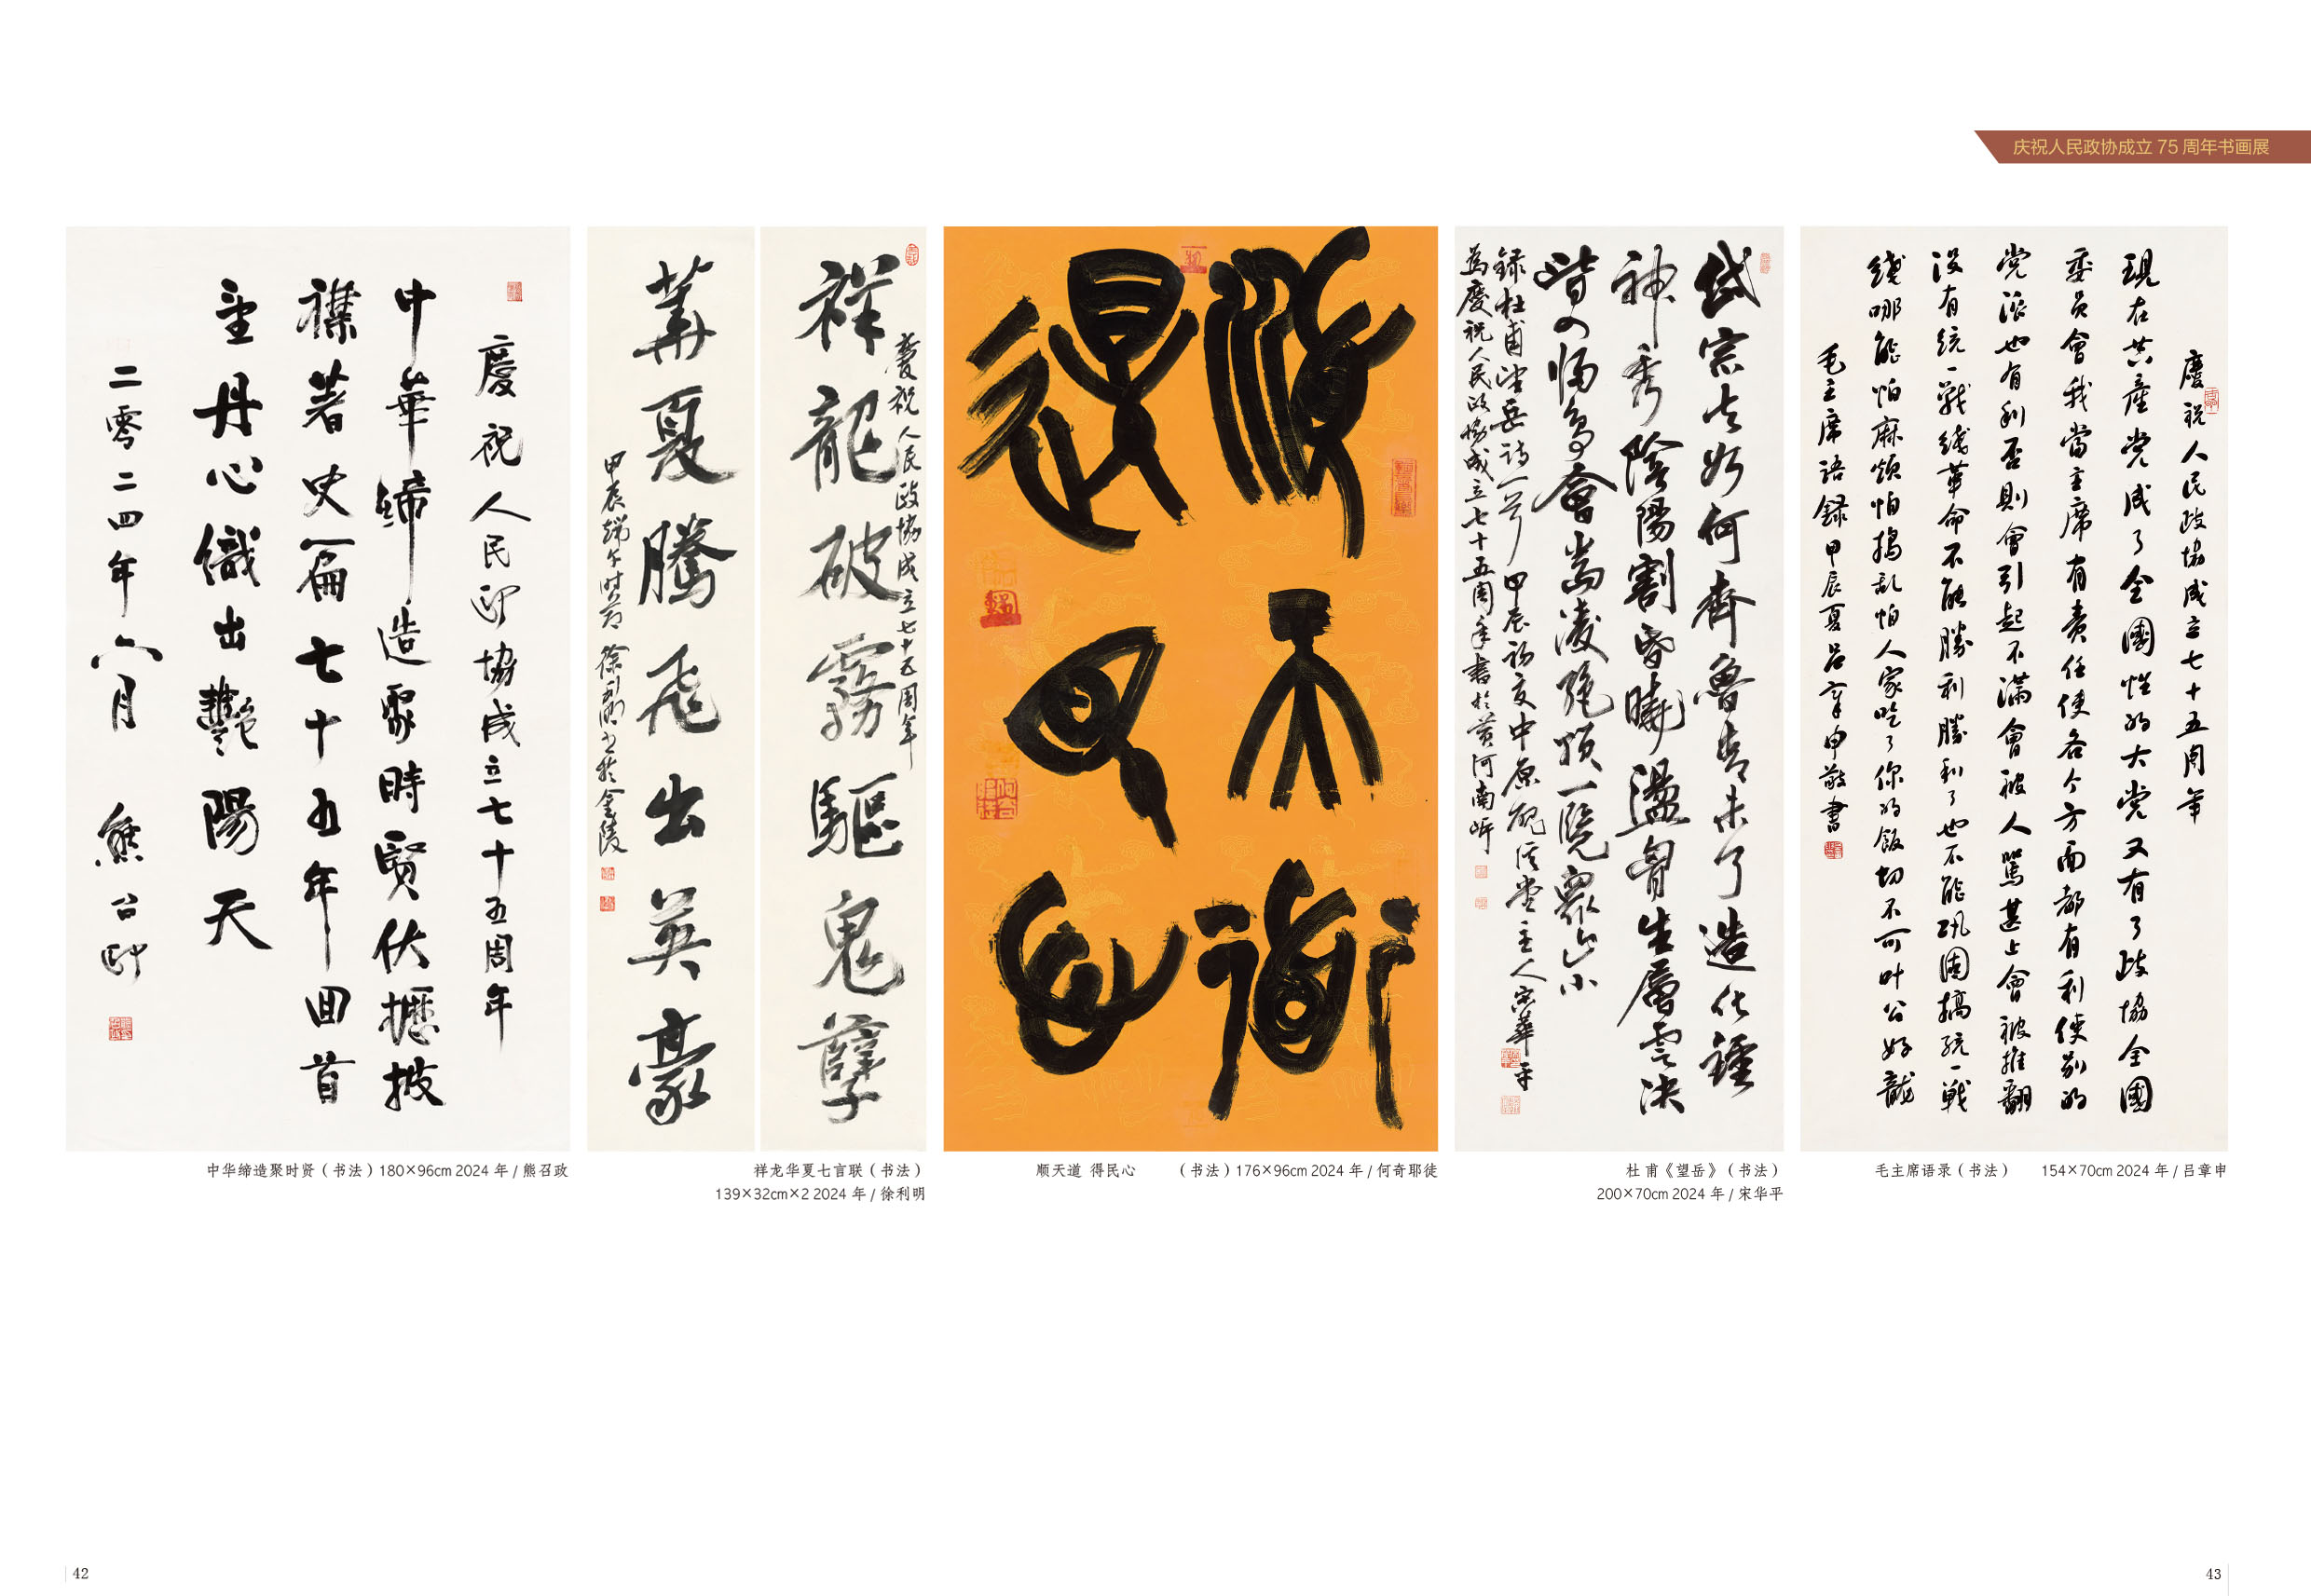 庆祝人民政协成立 75 周年书画展
慶祝人民政協成立七十五周年
中華締造聚時賢伏櫪披
襟著史篇七十五年回首
望丹心織出艷陽天
二零二四年六月 熊召政
中华缔造聚时贤（书法）180×96cm 2024 年 / 熊召政
慶祝人民政協成立七十五周年
祥龍破霧驅鬼孽
華夏騰飛出英豪
甲辰端午時節 徐利明書於金陵
祥龙华夏七言联（书法）
139×32cm×2 2024 年 / 徐利明
順天道
得民心
顺天道 得民心 （书法）176×96cm 2024 年 / 何奇耶徒
岱宗夫如何齊魯青未了造化鍾
神秀陰陽割昏曉盪胸生層雲決
眥入歸鳥會當凌絕頂一覽衆山小
錄杜甫望岳詩一首 甲辰初夏中原堂主人宋華平
為慶祝人民政協成立七十五周年書於黃河南岸
杜甫《望岳》（书法）
200×70cm 2024 年 / 宋华平
慶祝人民政協成立七十五周年
現在共產党成了全國性的大党又有了政協全國
委員會我當主席有責任使各个方面都有利使别的
党派也有利否則會引起不滿會被人罵甚至會被推翻
没有統一戰线革命不能勝利勝利了也不能巩固搞統一戰
线哪能怕麻煩怕搗乱怕人家吃了你的飯切不可叶公好龍
毛主席語録甲辰夏吕章申敬書
毛主席语录（书法） 154×70cm 2024 年 / 吕章申
42
43